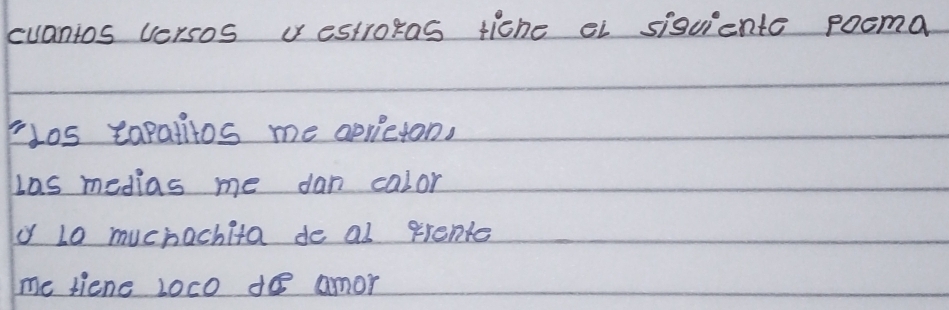 cuantos versos y estrofas tiene el siguiente poema
"Los zapatitos me aprietan,
Las medias me dan calor
y la muchachita de al frente
me tiene loco de amor